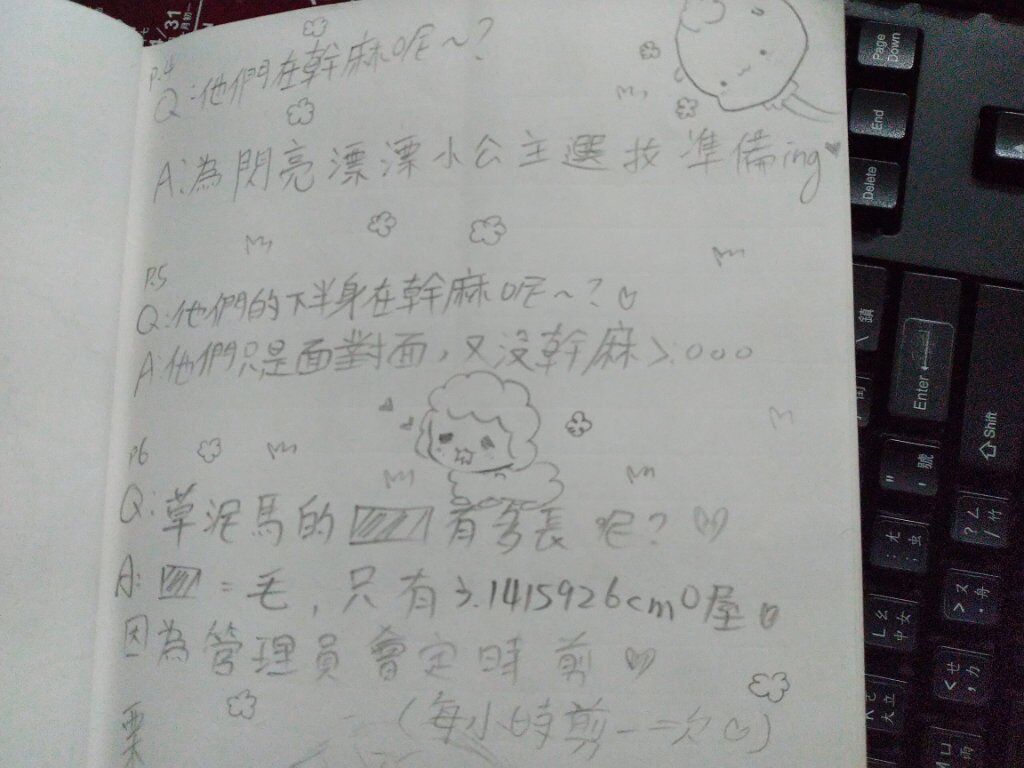 1/31
P.4
Q:他們在幹麻呢～?
A:為閃亮漂漂小公主選拔準備ing
P.5
Q:他們的下半身在幹麻呢～?
A:他們只是面對面,又沒幹麻>.ooo
P6
Q:草泥馬的 有多長呢?
A: =毛,只有3.1415926cm O屋
因為管理員會定時剪
(每小時剪一二次)
Page Down
End
Delete
Enter
Shift
號
虫
竹
舟
中女
力
大立
雨